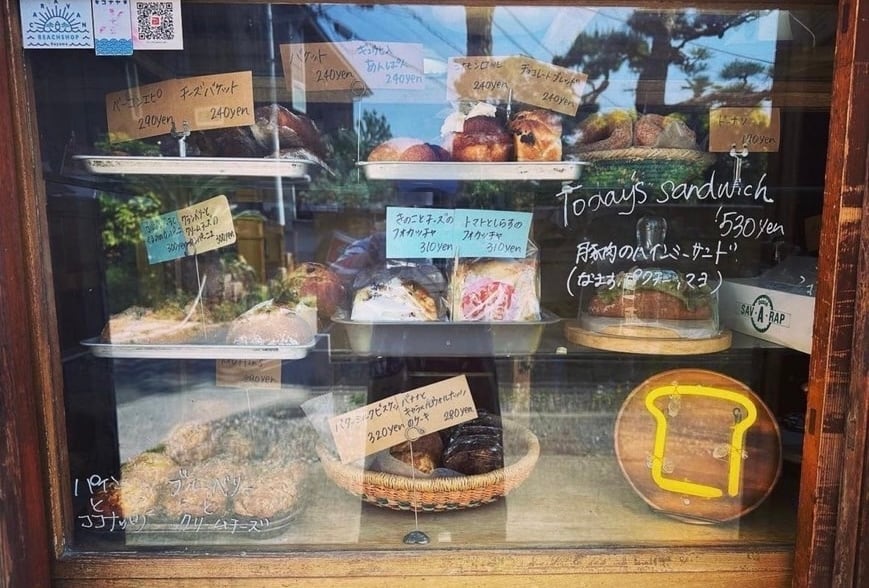 BEACHSHOP
Hayama
バゲット
240yen
ギュウヒと
あんぱん
240yen
240yen
チョコレートブレッド
240yen
ベーコンエピ
290yen
チーズバゲット
240yen
ドーナツ
170yen
Today's sandwich
530yen
豚肉のバインミーサンド
(なます、パクチー、マヨ)
きのことチーズの
フォカッチャ
310yen
トマトとしらすの
フォカッチャ
310yen
クランベリーと
クリームチーズの
300yen
SAV-A-RAP
Muffins
バターミルクビスケット
320yen
バナナと
キャラメルウォルナッツ
のケーキ
280yen
パイン
と
ココナッツ
ブルーベリー
と
クリームチーズ